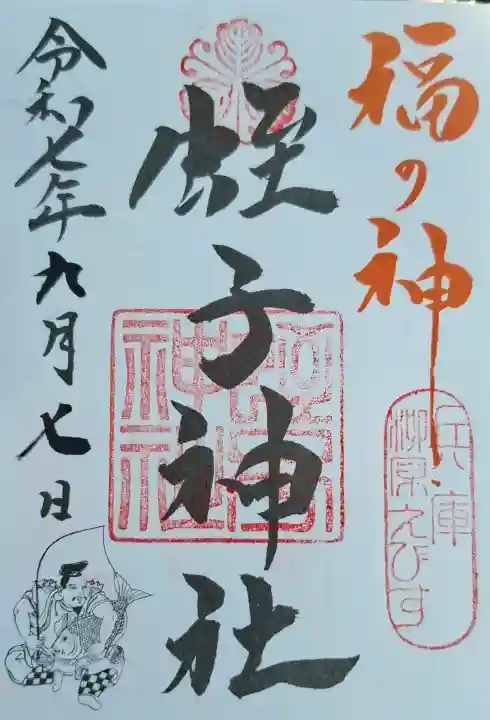 福の神
兵庫
柳原えびす
蛭子神社
蛭子神社
令和七年九月七日